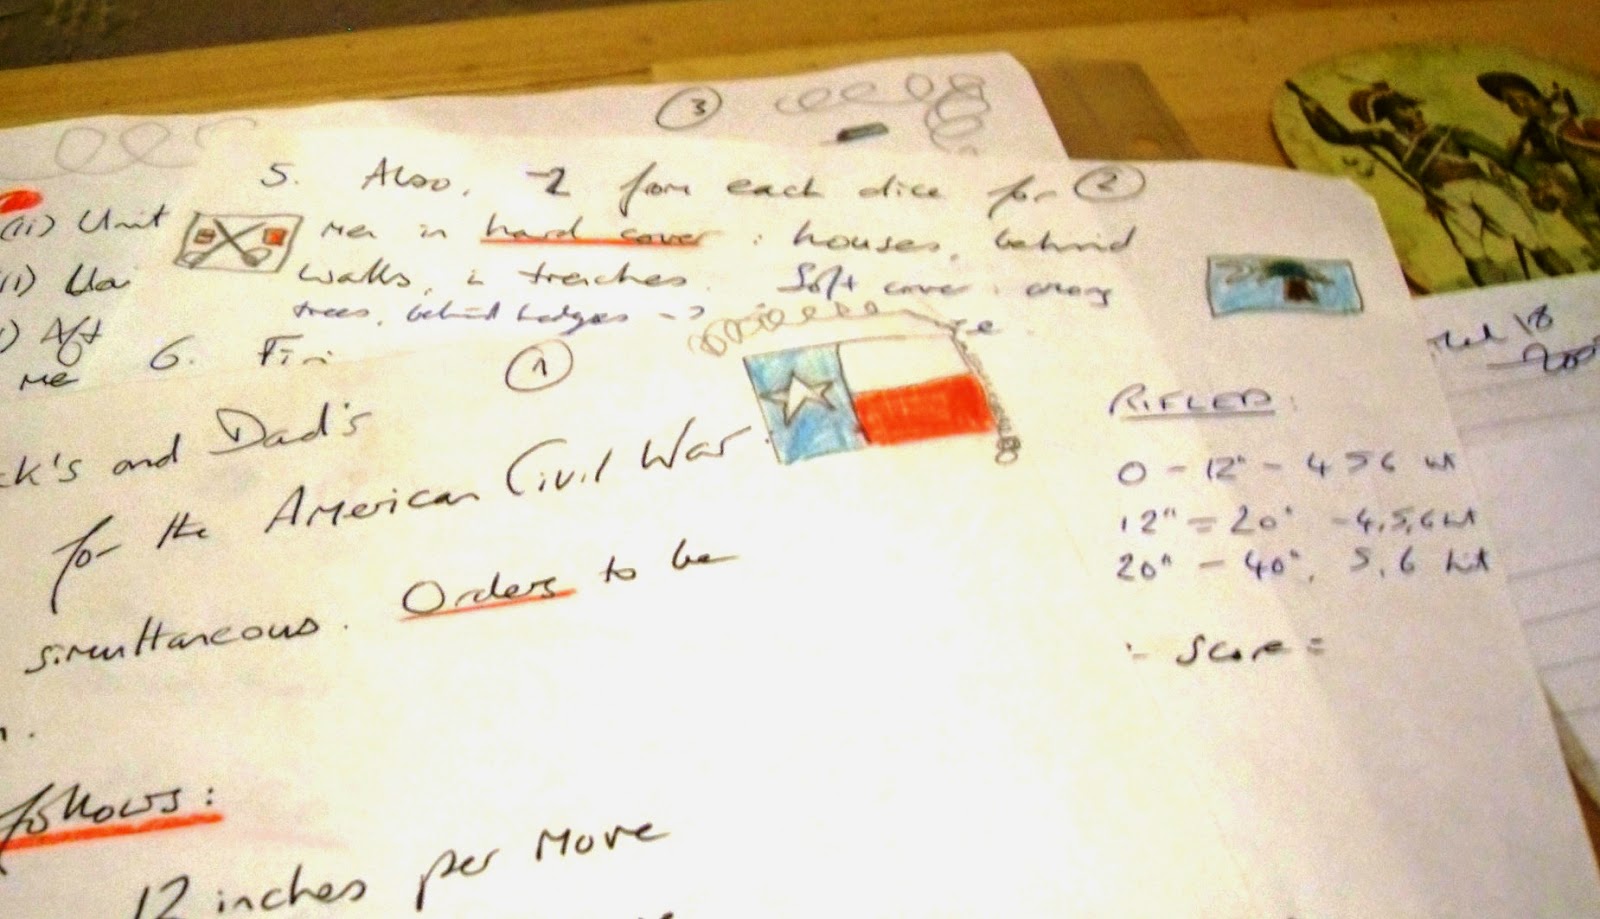 3
5. Also, -2 from each dice for 2
(ii) Unit
men in hard cover : houses, behind
walls, in trenches. Soft cover : among
trees, behind hedges ->
Aft
me
6. Fir
1
ck's and Dad's
for the American Civil War.
simulltaneous. Orders to be
follows:
12 inches per move
RIFLED:
0 - 12" - 4 5 6 hit
12" = 20" - 4,5,6 hit
20" - 40", 5,6 hit
Score =
18